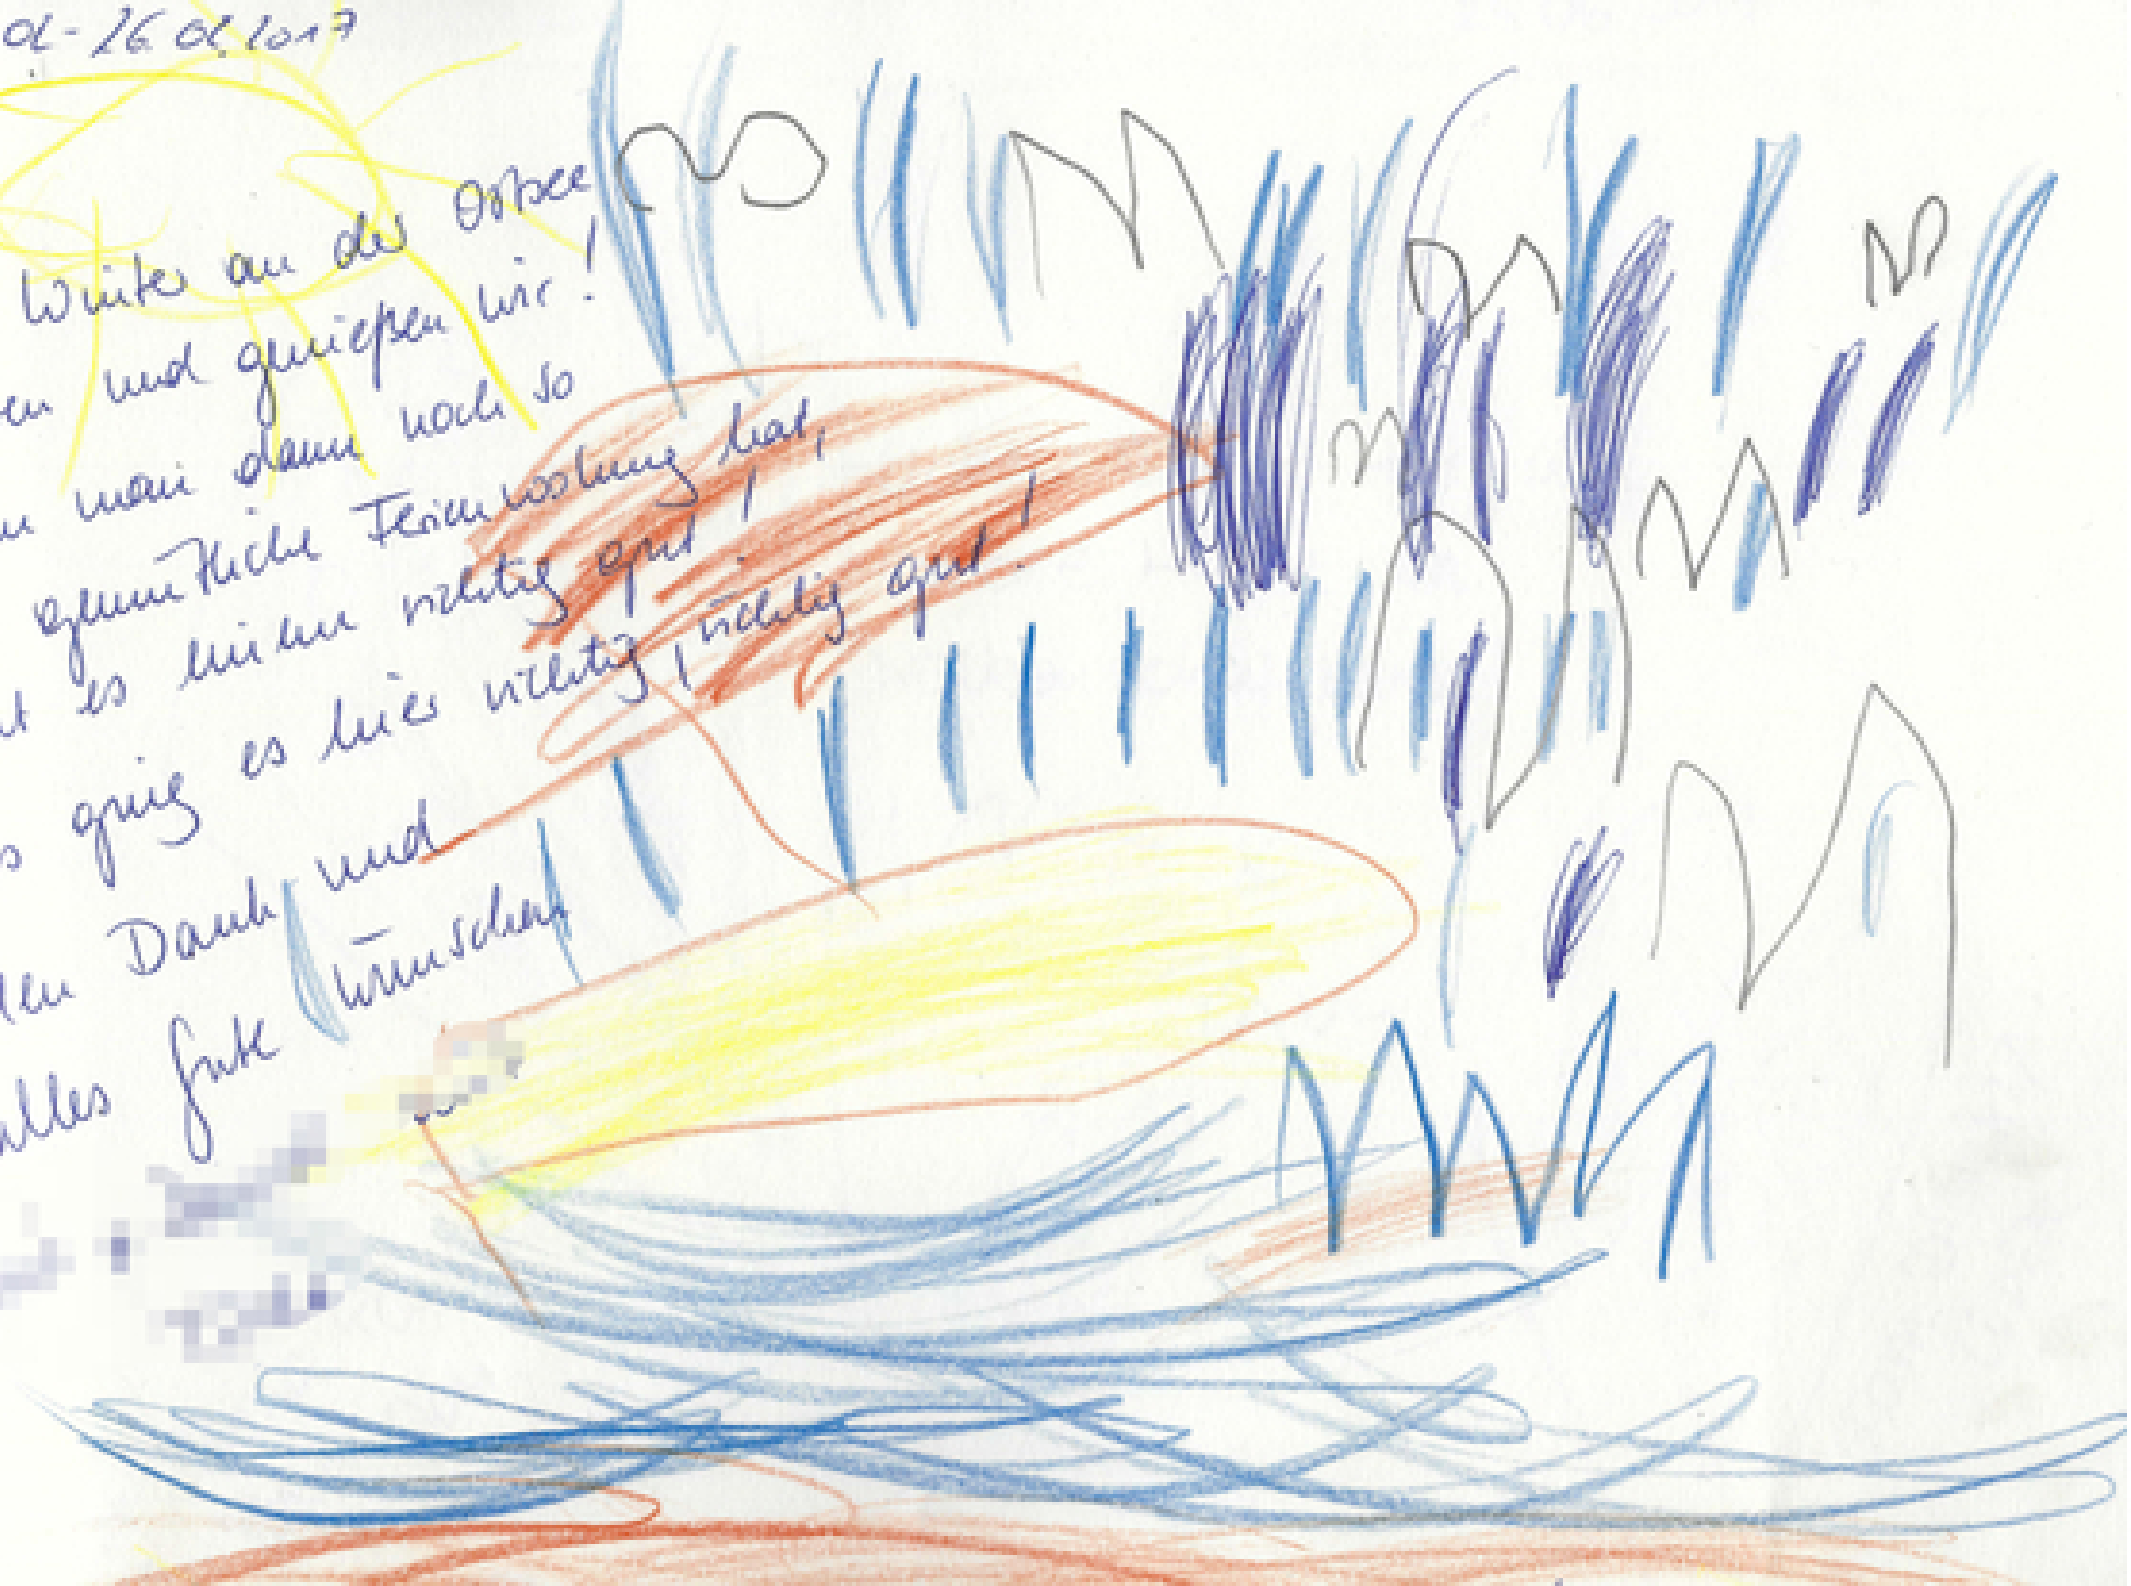 02.-26.02.2017
Winter an der Ostsee
und genießen wir!
man dann noch so
gemütliche Ferienwohnung hat,
es einem richtig gut!
ging es hier richtig, richtig gut!
Dank und
alles Gute wünschen